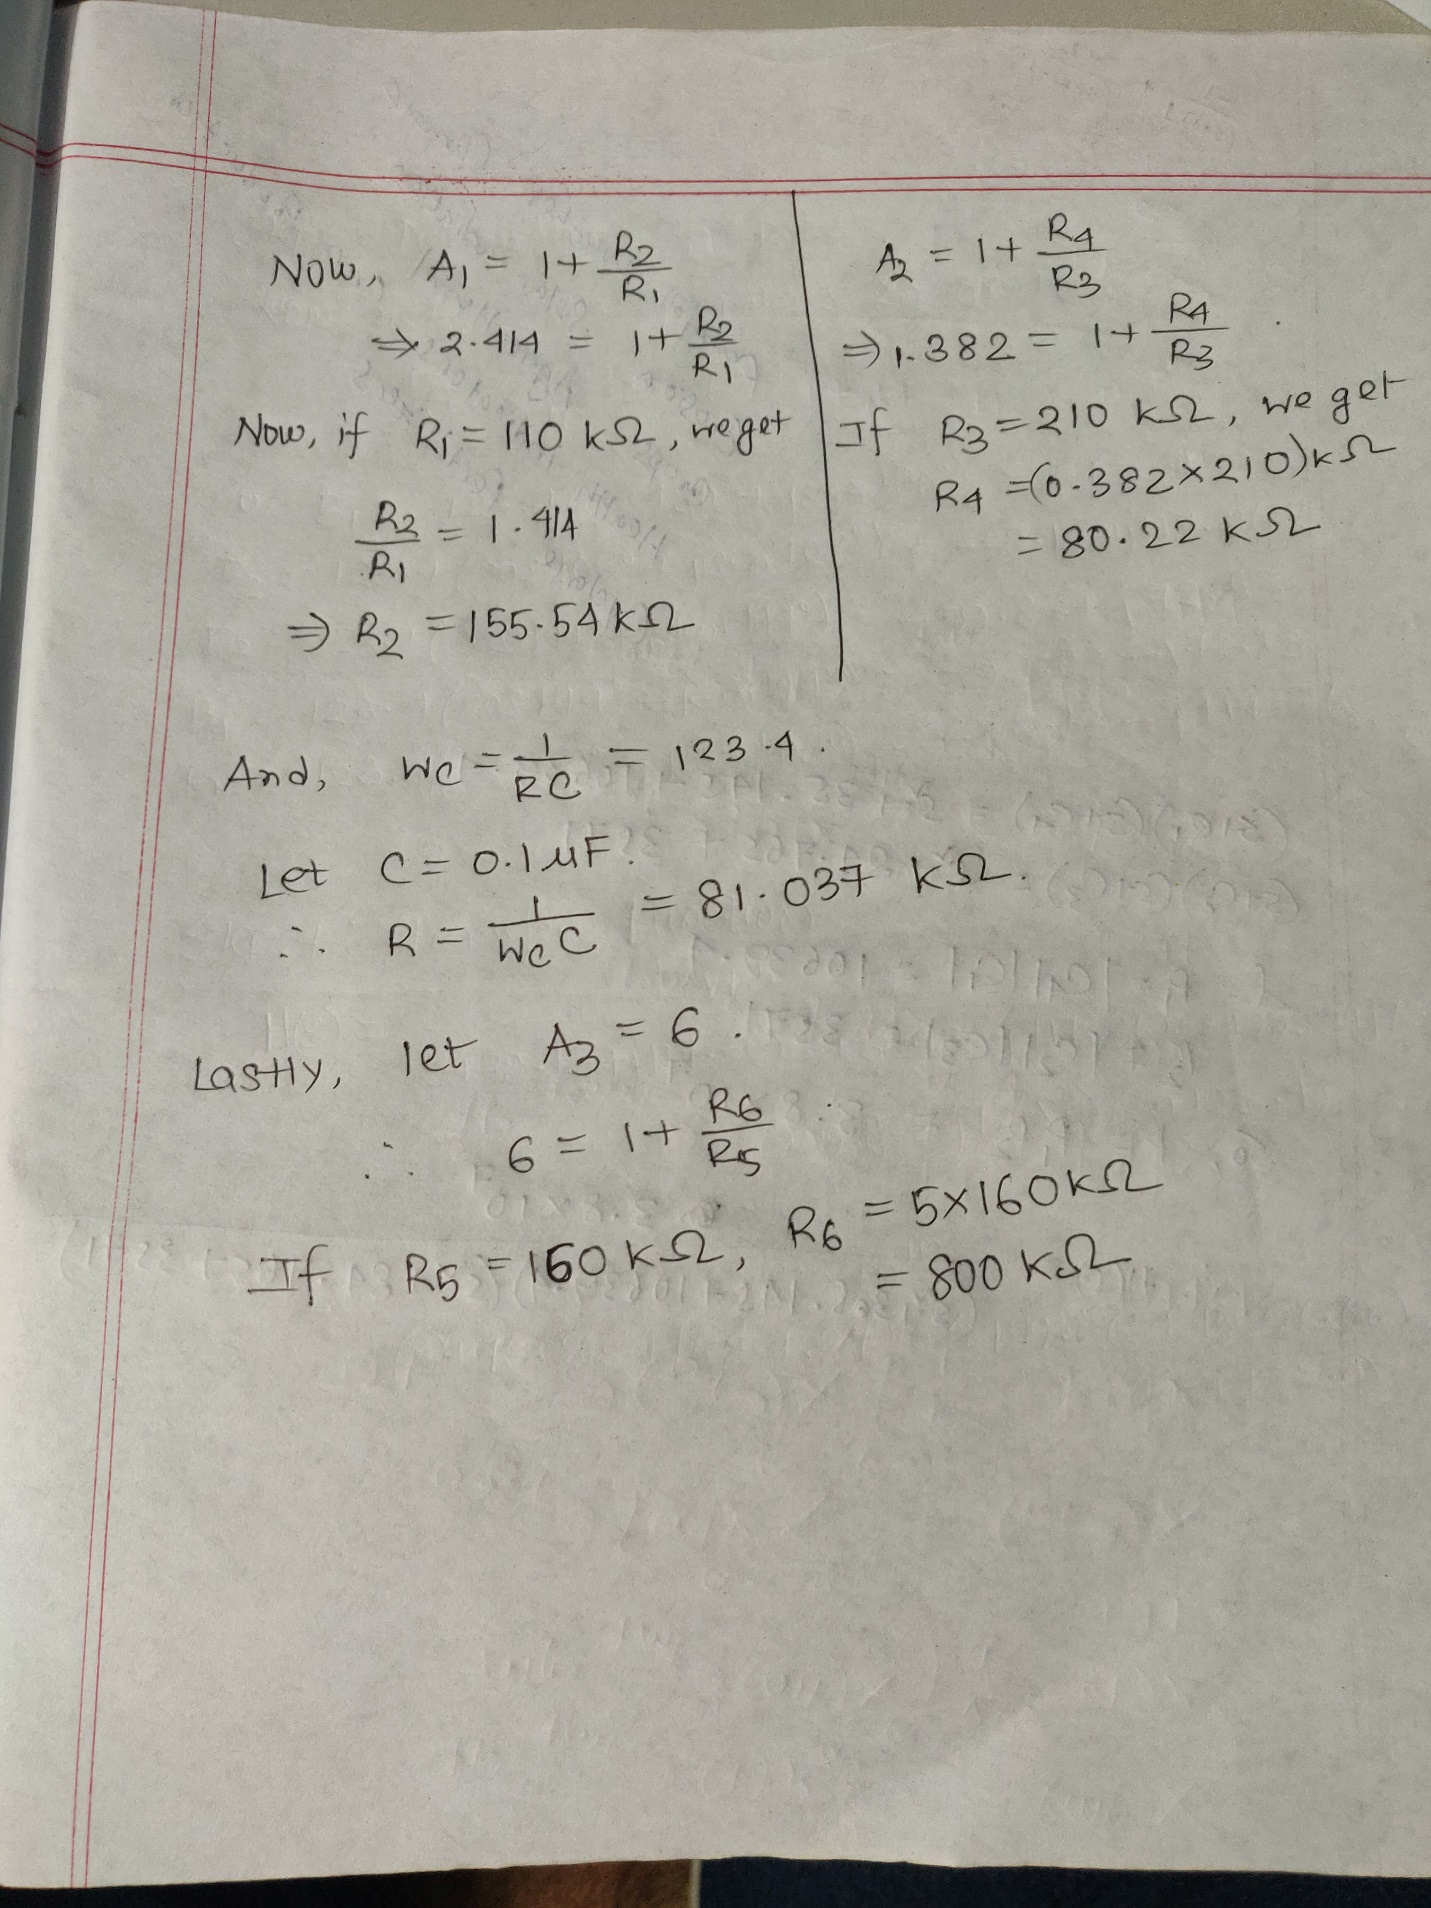 Now, A₁ = 1 + R₂/R₁
⇒ 2.414 = 1 + R₂/R₁
Now, if R₁ = 110 kΩ, we get
R₂/R₁ = 1.414
⇒ R₂ = 155.54 kΩ
A₂ = 1 + R₄/R₃
⇒ 1.382 = 1 + R₄/R₃
If R₃ = 210 kΩ, we get
R₄ = (0.382 × 210) kΩ
= 80.22 kΩ
And, Wc = 1/RC = 123.4.
Let C = 0.1 μF.
∴ R = 1/WcC = 81.037 kΩ.
Lastly, let A₃ = 6.
∴ 6 = 1 + R₆/R₅
If R₅ = 160 kΩ, R₆ = 5×160 kΩ
= 800 kΩ